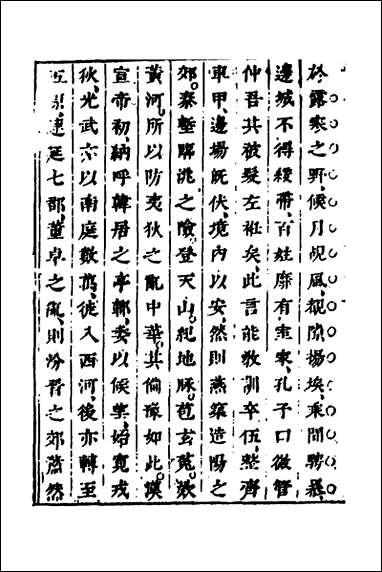 於露寒之野候月覘風覩隙揚埃乘間騁暴
邊城不得緩帶百姓靡有室家孔子曰微管
仲吾其被髮左衽矣此言能教訓卒伍整齊
車甲邊場既伏境内以安然則燕築造陽之
郊秦塹臨洮之險登天山紀地脉苞玄菟欵
黃河所以防夷狄之亂中華其俻豫如此漢
宣帝初納呼韓居之亭鄣委以候望始寬戎
狄光武亦以南庭數萬徙入西河後亦轉至
五原連延七郡董卓之亂則汾晉之郊蕭然